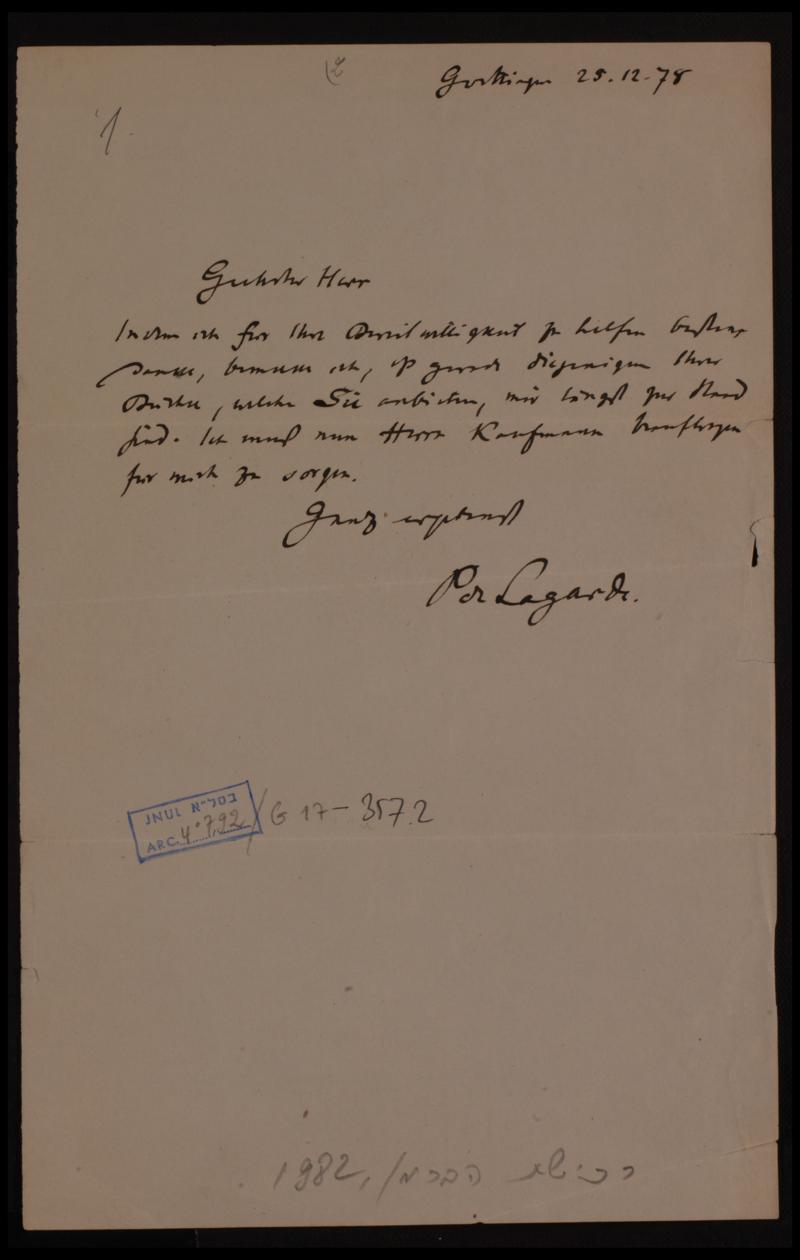 Goettingen 25.12.78
1.
Geehrter Herr
Indem ich für Ihre Bereitwilligkeit zu helfen bestens
danke, bemerke ich, daß gerade diejenigen Ihrer
Bücher, welche Sie anbieten, mir längst zur Hand
sind. Ich muß nun Herrn Kaufmann beauftragen
für mich zu sorgen.
Ganz ergebenst
P de Lagarde.
JNUL בסל"א
ARC. 4° 792 / G 17 - 357.2
רכישת 1982